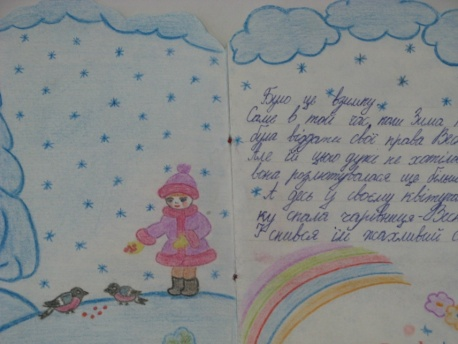 Було це взимку.
Саме в той час, коли Зима
була віддати свої права
Але їй цього дуже не хотіло
вона розлютувалася ще більш
А десь у своєму квітуч
ку спала чарівниця-Вес
І снився їй жахливий с